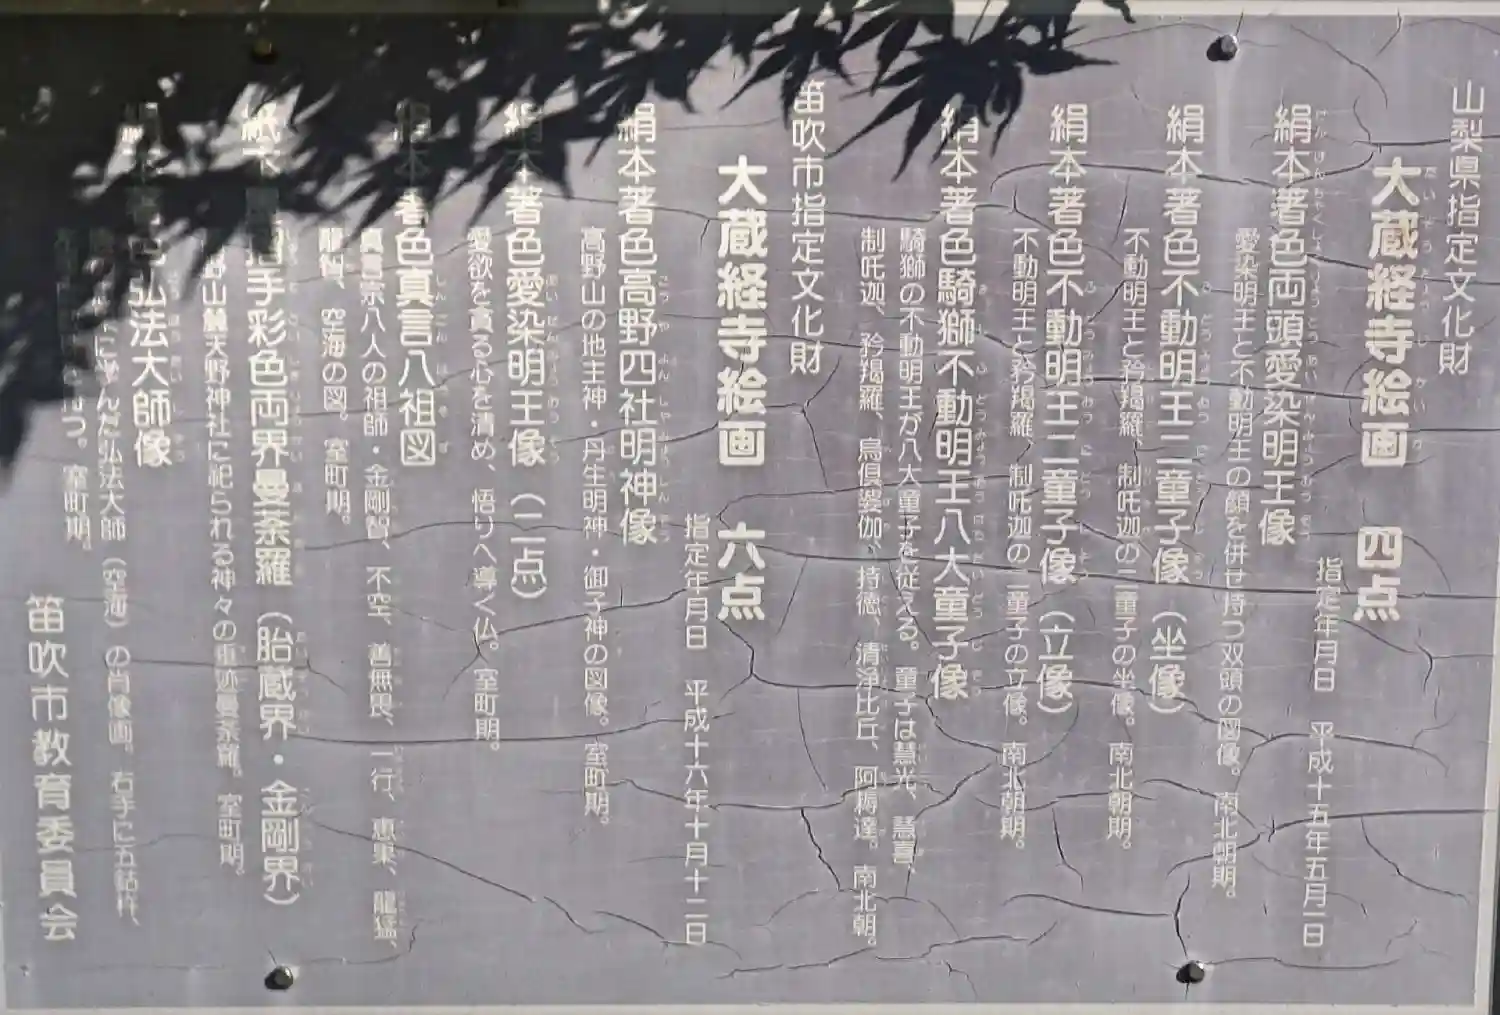 山梨県指定文化財
大蔵経寺絵画 四点
指定年月日 平成十五年五月一日
絹本著色両頭愛染明王像
愛染明王と不動明王の顔を併せ持つ双頭の図像。南北朝期。
絹本著色不動明王二童子像（坐像）
不動明王と矜羯羅、制吒迦の二童子の坐像。南北朝期。
絹本著色不動明王二童子像（立像）
不動明王と矜羯羅、制吒迦の二童子の立像。南北朝期。
絹本著色騎獅不動明王八大童子像
騎獅の不動明王が八大童子を従える。童子は慧光、慧喜、
制吒迦、矜羯羅、烏倶婆伽、持徳、清浄比丘、阿耨達。南北朝。
笛吹市指定文化財
大蔵経寺絵画 六点
指定年月日 平成十六年十月十二日
絹本著色高野四社明神像
高野山の地主神・丹生明神・御子神の図像。室町期。
絹本著色愛染明王像（二点）
愛欲を貪る心を清め、悟りへ導く仏。室町期。
本著色真言八祖図
真言宗八人の祖師・金剛智、不空、善無畏、一行、恵果、龍猛、
龍智、空海の図。室町期。
紙本 手彩色両界曼荼羅（胎蔵界・金剛界）
野山麓天野神社に祀られる神々の垂迹曼荼羅。室町期。
弘法大師像
に学んだ弘法大師（空海）の肖像画。右手に五鈷杵、
つ。室町期。
笛吹市教育委員会